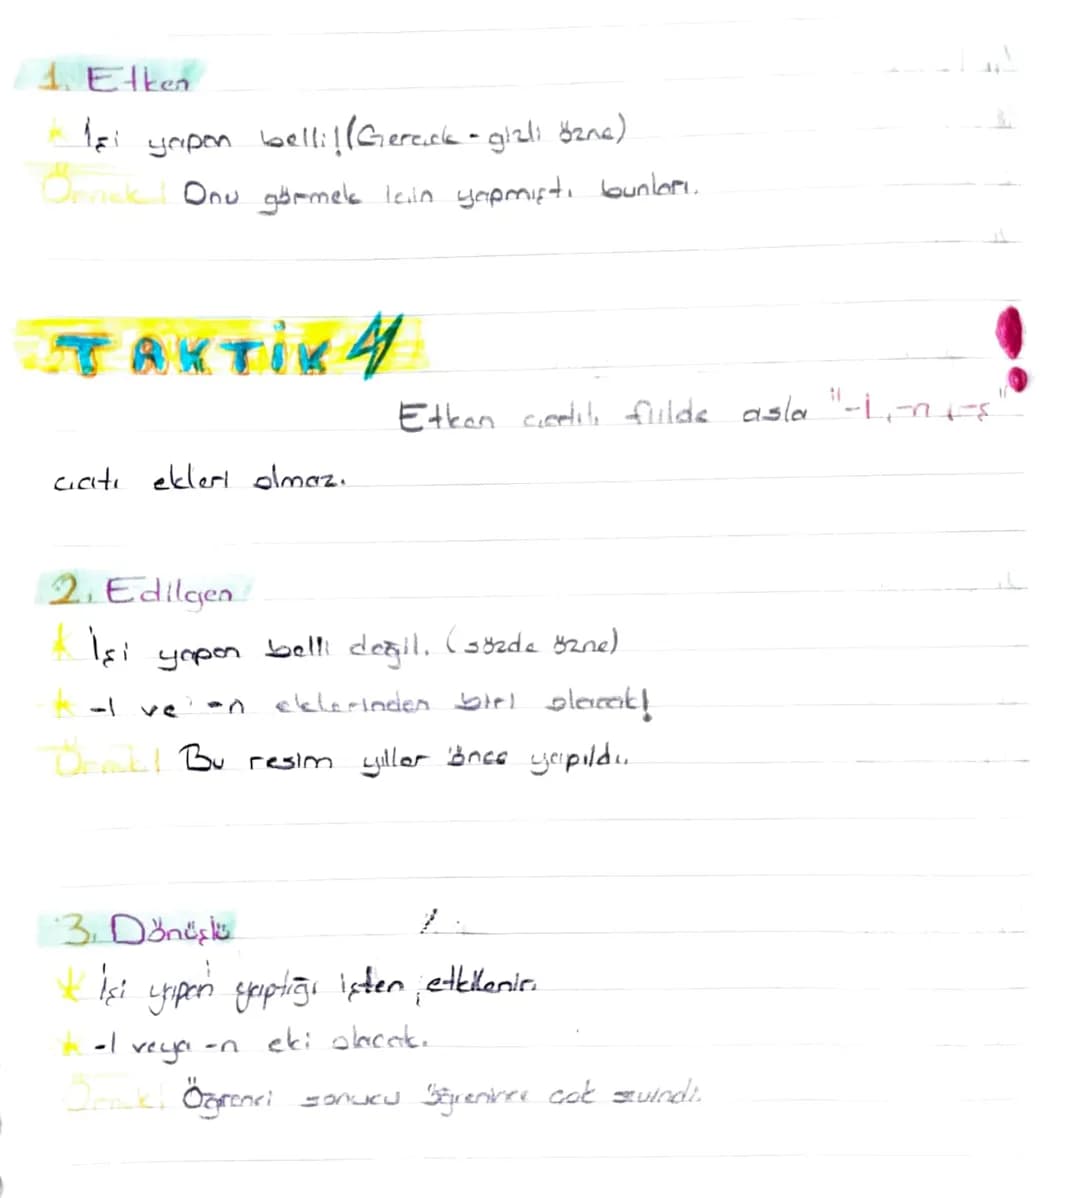 1. Etken
* İşi yapan belli! (Gerçek - gizli özne)
Örnek! Onu görmek için yapmıştı bunları.
TAKTİK
Etken çatılı fiilde asla "-l, -n, -ş"
çatı ekleri olmaz.
2. Edilgen
* İşi yapan belli değil. (sözde özne)
* -l ve -n eklerinden biri olacak!
Örnek! Bu resim yıllar önce yapıldı.
3. Dönüşlü
* İşi yapan yaptığı işten etkilenir.
* -l veya -n eki olacak.
Örnek! Öğrenci sonucu öğrenince çok sevindi.